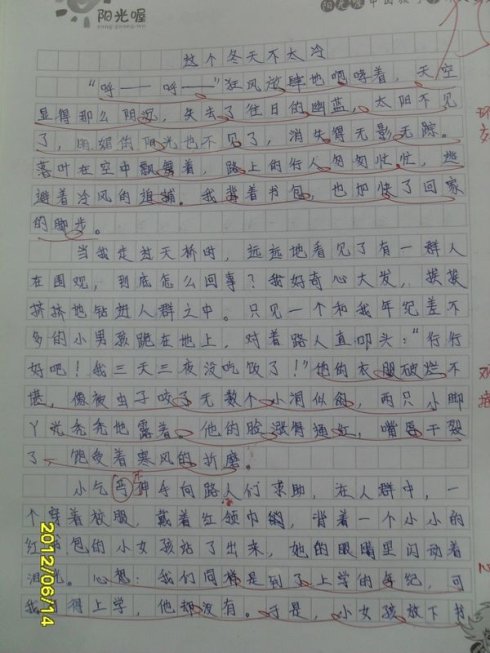 阳光喔
这个冬天不太冷
“呼—— 呼——”狂风放肆地咆哮着，天空
显得那么阴沉，失去了往日的幽蓝，太阳不见
了，明媚的阳光也不见了，消失得无影无踪。
落叶在空中飘舞着，路上的行人匆匆忙忙，逃
避着冷风的追捕。我背着书包，也加快了回家
的脚步。
当我走过天桥时，远远地看见了有一群人
在围观，到底怎么回事？我好奇心大发，挨挨
挤挤地钻进人群之中。只见一个和我年纪差不
多的小男孩跪在地上，对着路人直叩头：“行行
好吧！我三天三夜没吃饭了！”他的衣服破烂不
堪，像被虫子咬了无数个小洞似的，两只小脚
丫光秃秃地露着。他的脸涨得通红，嘴唇干裂
了，饱受着寒风的折磨。
小气丐伸手向路人们求助，在人群中，一
个穿着校服，戴着红领巾的，背着一个小小的
红书包的小女孩站了出来，她的眼睛里闪动着
泪光。心想：我们同样是到了上学的年纪，可
我们得上学，他却没有。于是，小女孩放下书
2012/06/14